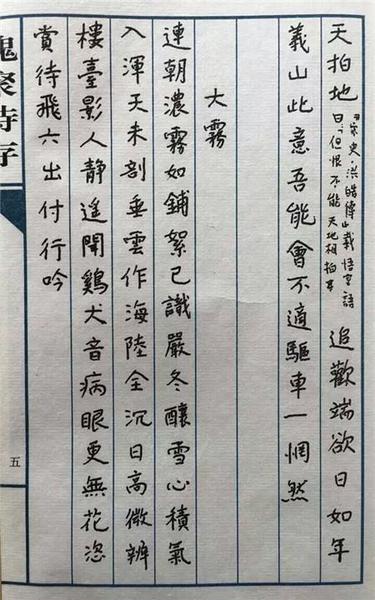 天拍地宋史·洪皓傳載悟室語
曰：但恨不能天地相拍耳
追歡端欲日如年
義山此意吾能會不適驅車一惘然
大霧
連朝濃霧如鋪絮已識嚴冬釀雪心積氣
入渾天未剖垂雲作海陸全沉日高微辨
樓臺影人靜遥聞鷄犬音病眼更無花恣
賞待飛六出付行吟
槐聚詩存
五